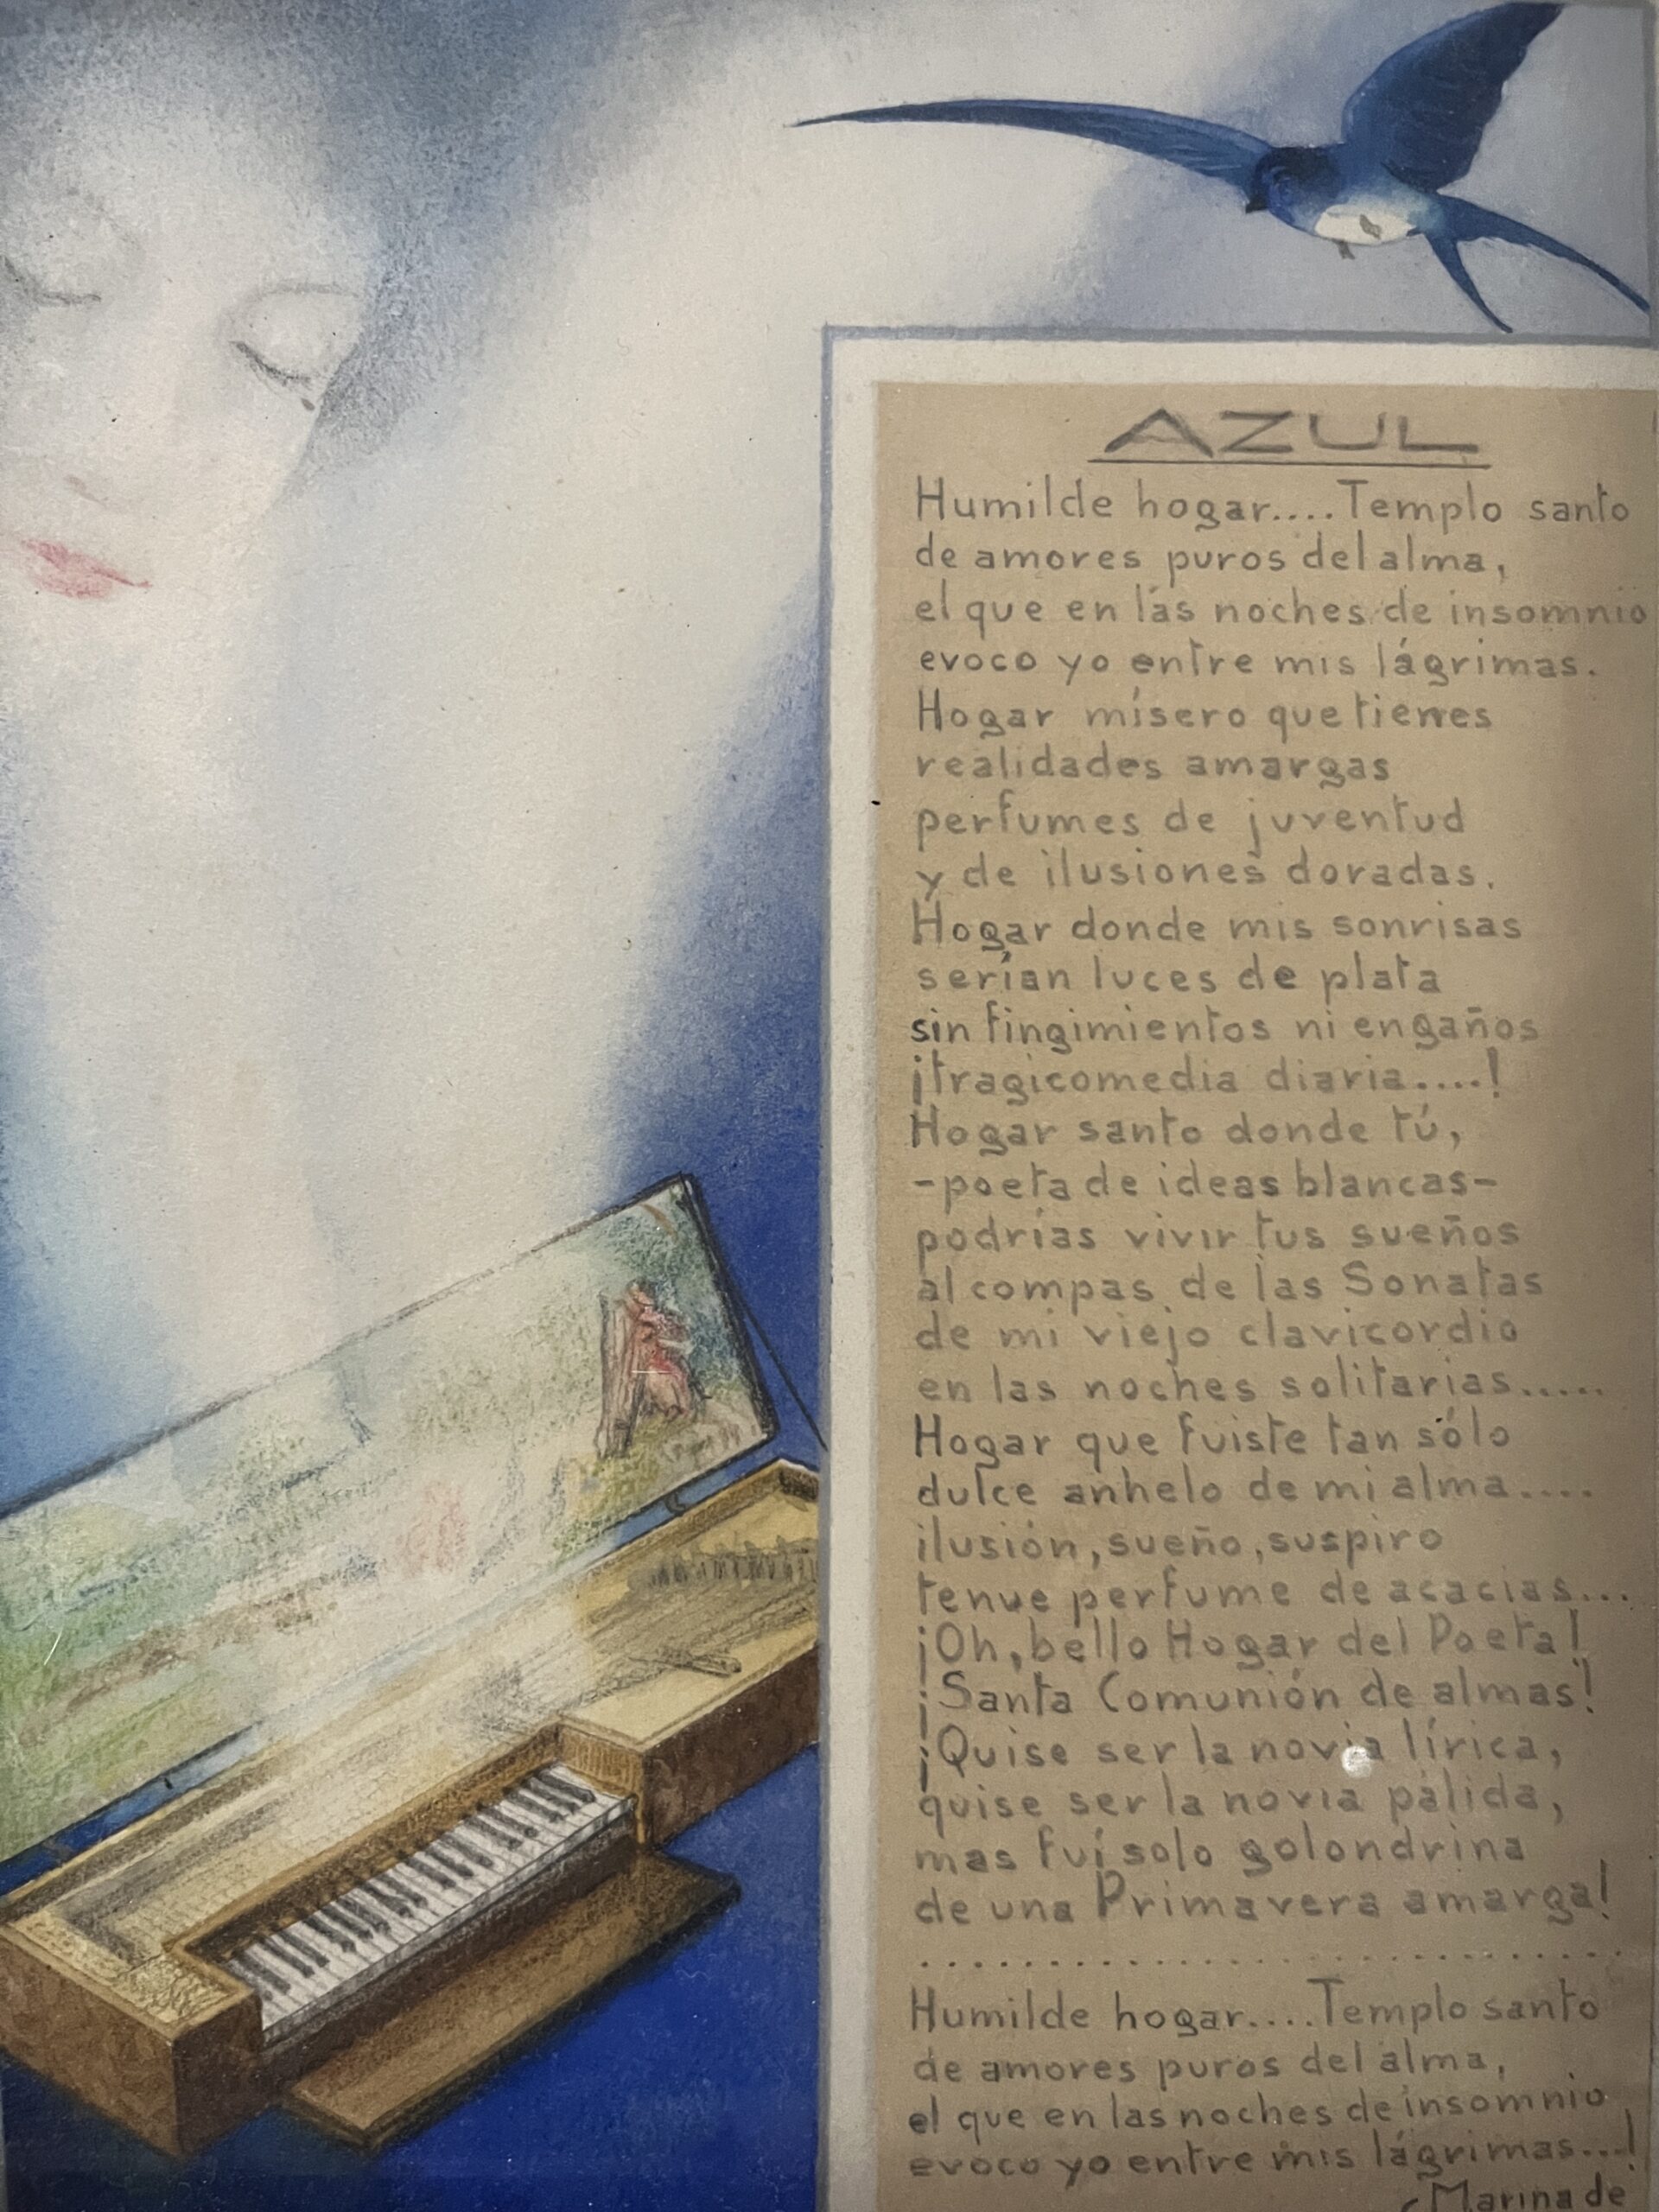 AZUL
Humilde hogar....Templo santo
de amores puros del alma,
el que en las noches de insomnio
evoco yo entre mis lágrimas.
Hogar mísero que tienes
realidades amargas
perfumes de juventud
y de ilusiones doradas.
Hogar donde mis sonrisas
serían luces de plata
sin fingimientos ni engaños
¡tragicomedia diaria....!
Hogar santo donde tú,
-poeta de ideas blancas-
podrías vivir tus sueños
al compas de las Sonatas
de mi viejo clavicordio
en las noches solitarias.....
Hogar que fuiste tan sólo
dulce anhelo de mi alma....
ilusión, sueño, suspiro
tenue perfume de acacias...
¡Oh, bello Hogar del Poeta!
¡Santa Comunión de almas!
¡Quise ser la novia lírica,
quise ser la novia pálida,
mas fuí solo golondrina
de una Primavera amarga!
..............................
Humilde hogar....Templo santo
de amores puros del alma,
el que en las noches de insomnio
evoco yo entre mis lágrimas...!
Marina de